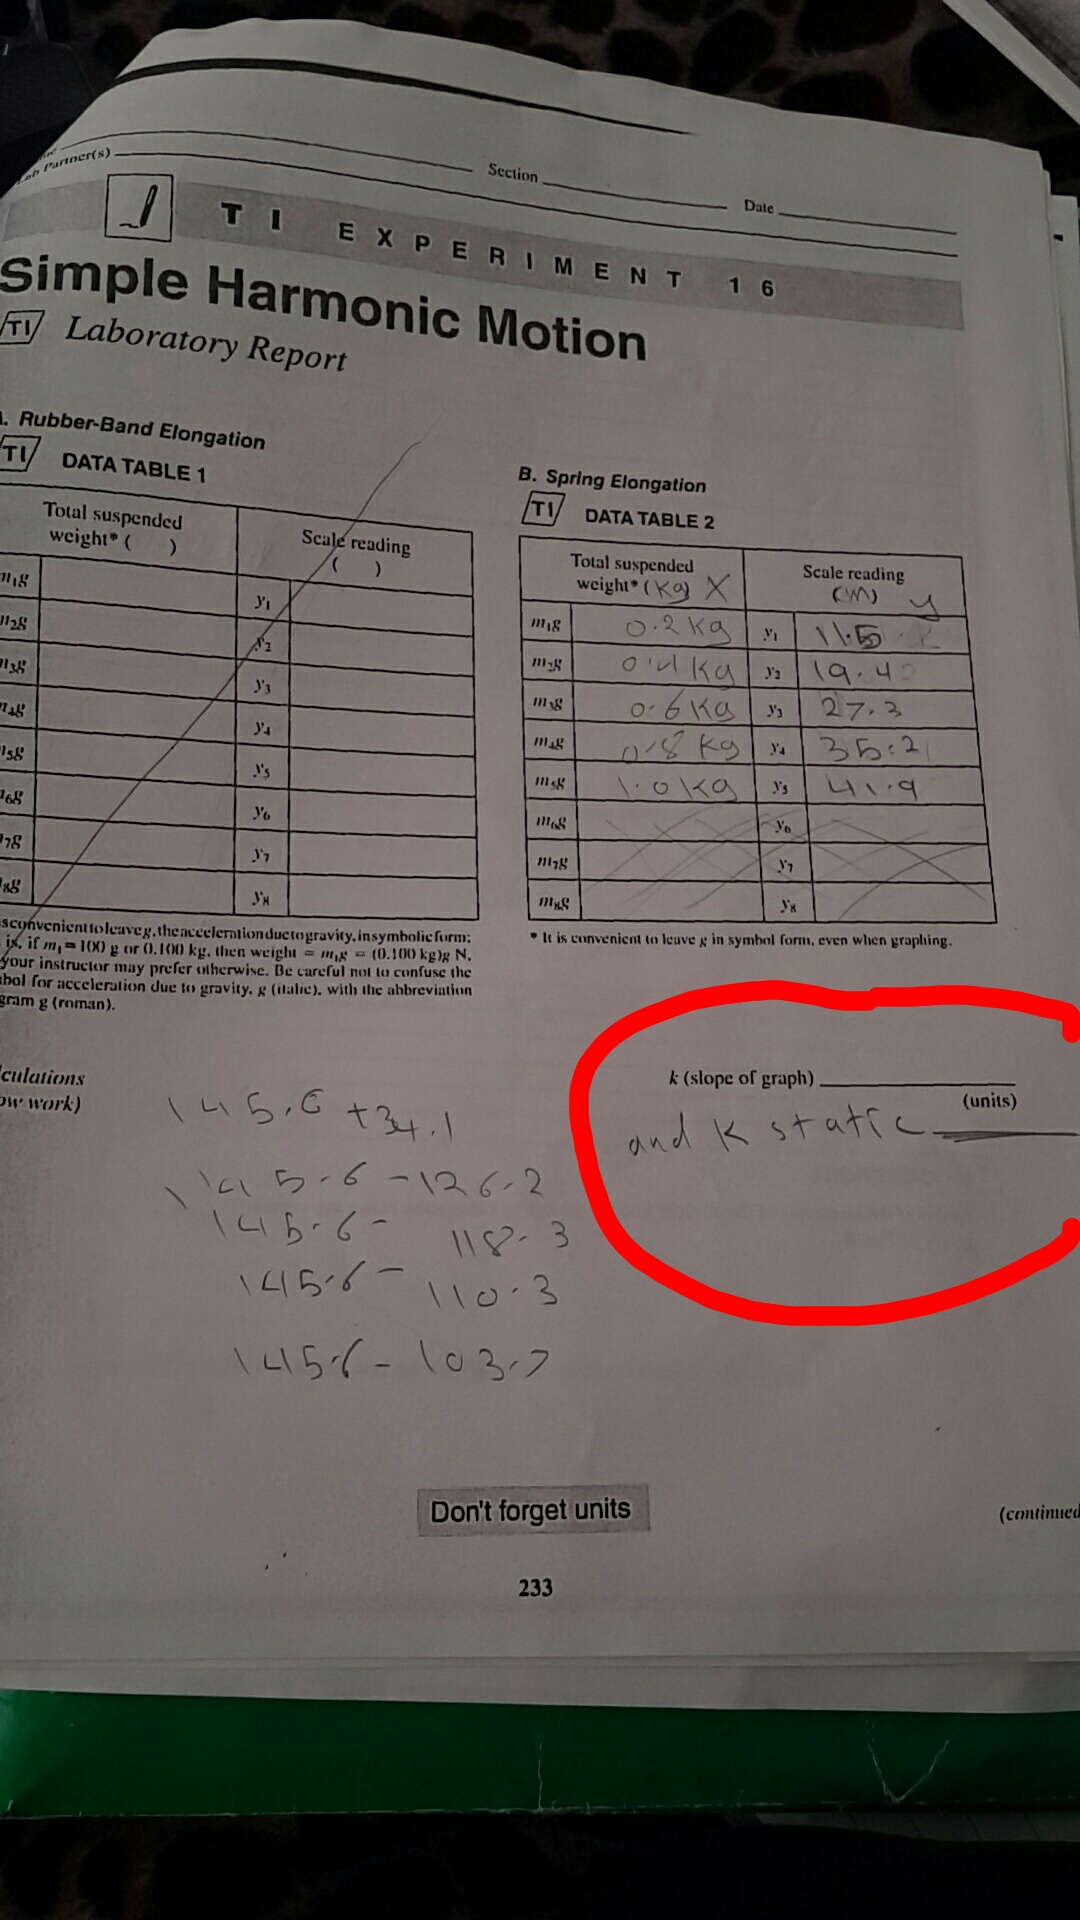 Partner(s)
Section
Date
TI EXPERIMENT 16
Simple Harmonic Motion
TI Laboratory Report
A. Rubber-Band Elongation
TI DATA TABLE 1
Total suspended
weight* ( )
Scale reading
( )
m₁g y₁
m₂g y₂
m₃g y₃
m₄g y₄
m₅g y₅
m₆g y₆
m₇g y₇
m₈g y₈
is convenient to leave g, the acceleration due to gravity, in symbolic form:
is, if m₁ = 100 g or 0.100 kg, then weight = m₁g = (0.100 kg)g N.
your instructor may prefer otherwise. Be careful not to confuse the
bol for acceleration due to gravity, g (italic), with the abbreviation
gram g (roman).
B. Spring Elongation
TI DATA TABLE 2
Total suspended
weight* (Kg) X
Scale reading
(m) y
m₁g 0.2 Kg y₁ 11.5
m₂g 0.4 Kg y₂ 19.4
m₃g 0.6 Kg y₃ 27.3
m₄g 0.8 Kg y₄ 35.2
m₅g 1.0 Kg y₅ 41.9
m₆g y₆
m₇g y₇
m₈g y₈
* It is convenient to leave g in symbol form, even when graphing.
culations
ow work)
145.6 + 34.1
145.6 - 126.2
145.6 - 118.3
145.6 - 110.3
145.6 - 103.7
k (slope of graph)
(units)
and K static
Don't forget units
(continued
233